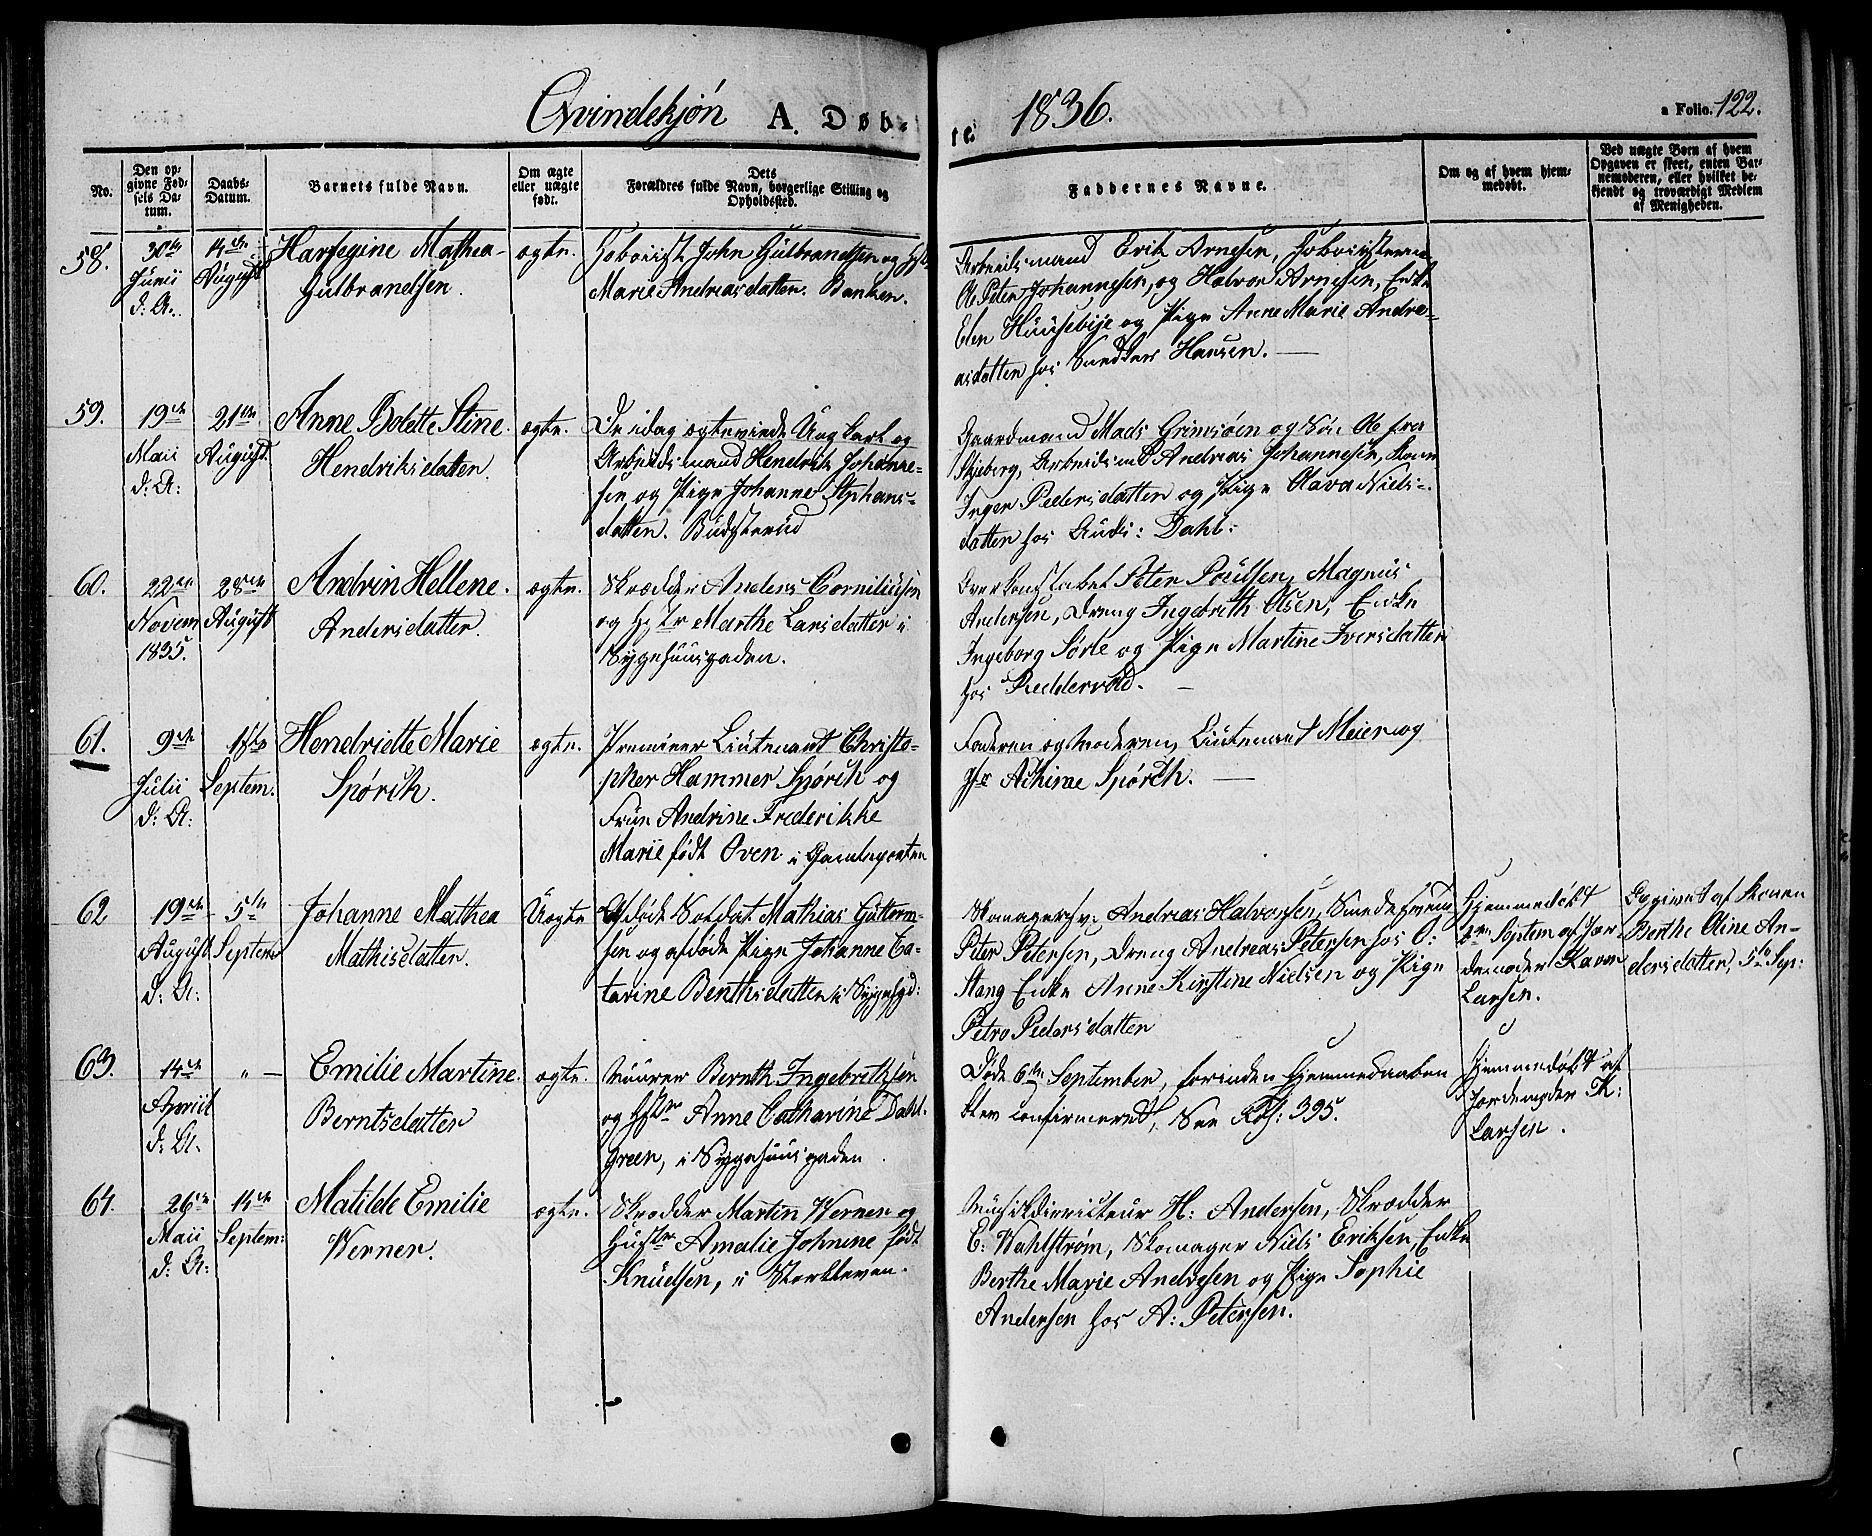 Qvindekjøn A. Døb-
te. 1836.
a Folio. 122.
No.
Den op-
givne Fød-
sels Da-
tum.
Daabs-
Datum.
Barnets fulde Navn.
Om ægte
eller uægte
født.
Dets
Forældres fulde Navn, borgerlige Stilling og
Opholdssted.
Faddernes Navne.
Om og af hvem hjem-
medøbt.
Ved uægte Børn af hvem
Opgaven er skeet, enten Bar-
nemoderen, eller hvilket be-
kjendt og troværdigt Medlem
af Menigheden.
58.
30te
Junii
d: A.
14de
August
Mathea
Gulbrandsen.
ægte.
Hoboist John Gulbrandsen og
Marie Andreasdatter. Banken.
Arbeidsmand Erik Arnesen, Hoboisterne
Ole Peter Johannesen, og Halvor Arnesen, Enke
Elen Huusebye og Pige Anne Marie Andre-
asdatter hos Snedker Hansen. —
59.
19de
Maii
d: A:
21de
August
Anne Bolette Stine
Hendriksdatter.
ægte.
De idag ægteviede Ungkarl og
Arbeidsmand Hendrik Johanne-
sen og Pige Johanne Stephans-
datter. Budsterud
Gaardmand Mads Grimsøen og Søn Ole fra
Skjeberg, Arbeidsmd Andreas Johannesen, Kone
Inger Pedersdatter og Pige Olava Niels-
datter hos Dahl:
60.
22de
Novem
1835.
28de
August
Andrin Hellene
Andersdatter.
ægte.
Skrædder Anders Corniliusen
og Hstr Marthe Larsdatter i
Sygehuusgaden.
Overkonstabel Peter Poulsen, Magnus
Andersen, Dreng Ingebrith Olsen, Enke
Ingeborg Sørle og Pige Martine Iversdatter
hos
61.
9de
Julii
d: A:
1ste
Septem.
Hendriette Marie
Spørck.
ægte.
Premieer Liutenant Christo-
pher Hammer Spørck og
Frue Andrine Frederikke
Marie født Oven i Gamleporten
Faderen og Moderen, Liutenant Meier og
Spørck. —
62
19de
August
d: A:
5te
Septem
Johanne Mathea
Mathisdatter.
Uægte
Afdøde Soldat Mathias Gutterm-
sen og afdøde Pige Johanne Ca-
tarine Bentsdatter i Sygehgd:
Skomagersv: Andreas Halvorsen, Smedesvend
Peter Petersen, Dreng Andreas Petersen hos O:
Stang Enke Anne Kirstine Nielsen og Pige
Petra Pedersdatter
Hjemmedøbt
Septem af Jor-
demoder Karen
Larsen.
Opgivet af Konen
Berthe Oline An-
dersdatter, 5te Sep:
63.
14de
April
d: A.
„ —
Emilie Martine
Berntsdatter
ægte.
Muurer Bernth Ingebrithsen
og Hstr Anne Catharine Dahl-
green, i Sygehuusgaden
Døde 6te September, forinden Hjemmedaaben
blev confirmeret, See Fol: 395.
Hjemmedøbt af
Jordemoder K:
Larsen.
64.
26de
Maii
d: A:
14de
Septem:
Matilde Emilie
Werner.
ægte.
Skrædder Martin Werner og
Hustr Amalie Johnine født
Knudsen, i Storkleven.
Musikdirecteur H: Andersen, Skrædder
E: Wahlstrøm, Skomager Niels Eriksen, Enke
Berthe Marie Andresen og Pige Sophie
Andersen hos A: Petersen.